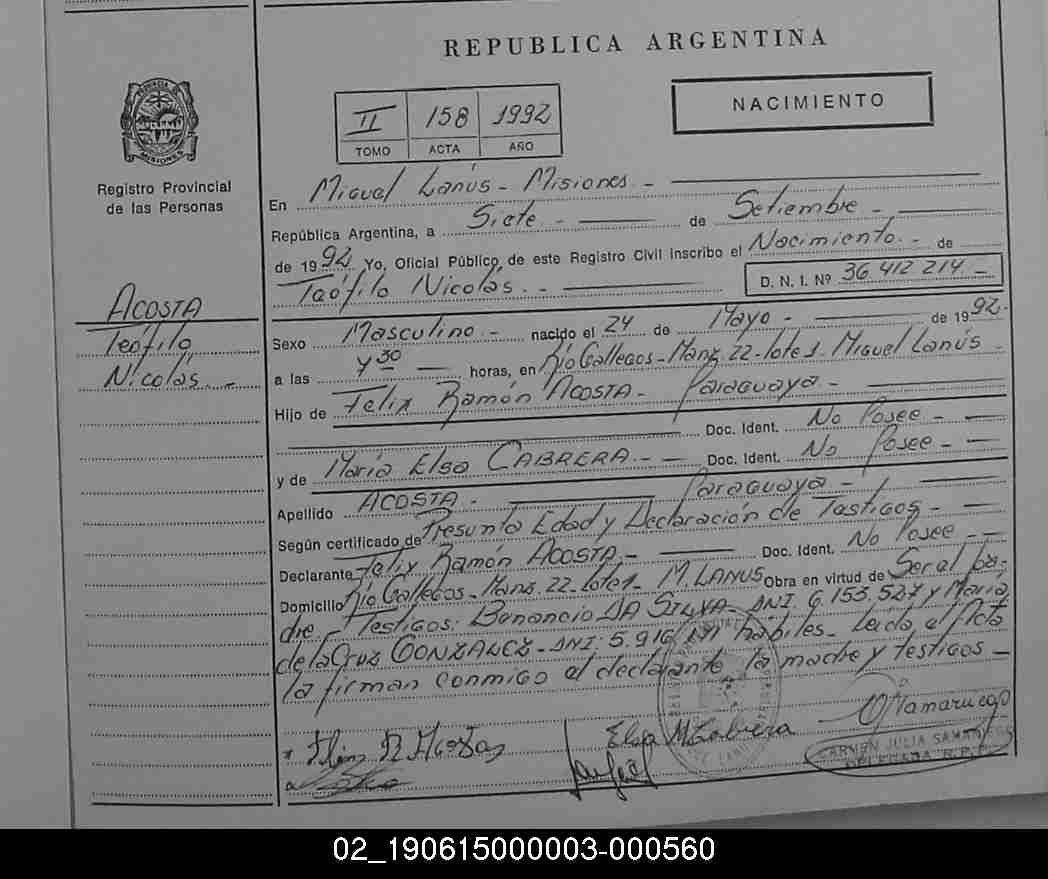 REPUBLICA ARGENTINA
PROVINCIA DE MISIONES
Registro Provincial
de las Personas
II 158 1992
TOMO ACTA AÑO
NACIMIENTO
En Miguel Lanús - Misiones -
República Argentina, a Siete - de Setiembre -
de 1992 Yo, Oficial Público de este Registro Civil inscribo el Nacimiento - de
Teófilo Nicolás - D. N. I. Nº 36.412.214 -
ACOSTA
Teófilo
Nicolás. -
Sexo Masculino - nacido el 24 de Mayo - de 1992.
a las 4 30 - horas, en Río Gallegos - Manz. 22 - lote 1. Miguel Lanús -
Hijo de Felix Ramón ACOSTA - Paraguaya -
Doc. Ident. No Posee -
y de María Elsa CABRERA - - Doc. Ident. No Posee -
Apellido ACOSTA - Paraguaya -
Según certificado de Presunta Edad y Declaración de Tastigos -
Declarante Felix Ramón ACOSTA - Doc. Ident. No Posee -
Domicilio Río Gallegos - Manz. 22 - Lote 1 - M. LANUS Obra en virtud de Ser el pa-
dre - Testigos: Benancio DA SILVA - DNI. 6.153.527 y María
de la Cruz GONZALEZ - DNI: 5.916.191 hábiles - Leída el Acta
la firman conmigo el declarante la madre y testigos -
Elsa M Cabrera
CARMEN JULIA SAMANIEGO
DELEGADA R.P.P.
02_190615000003-000560